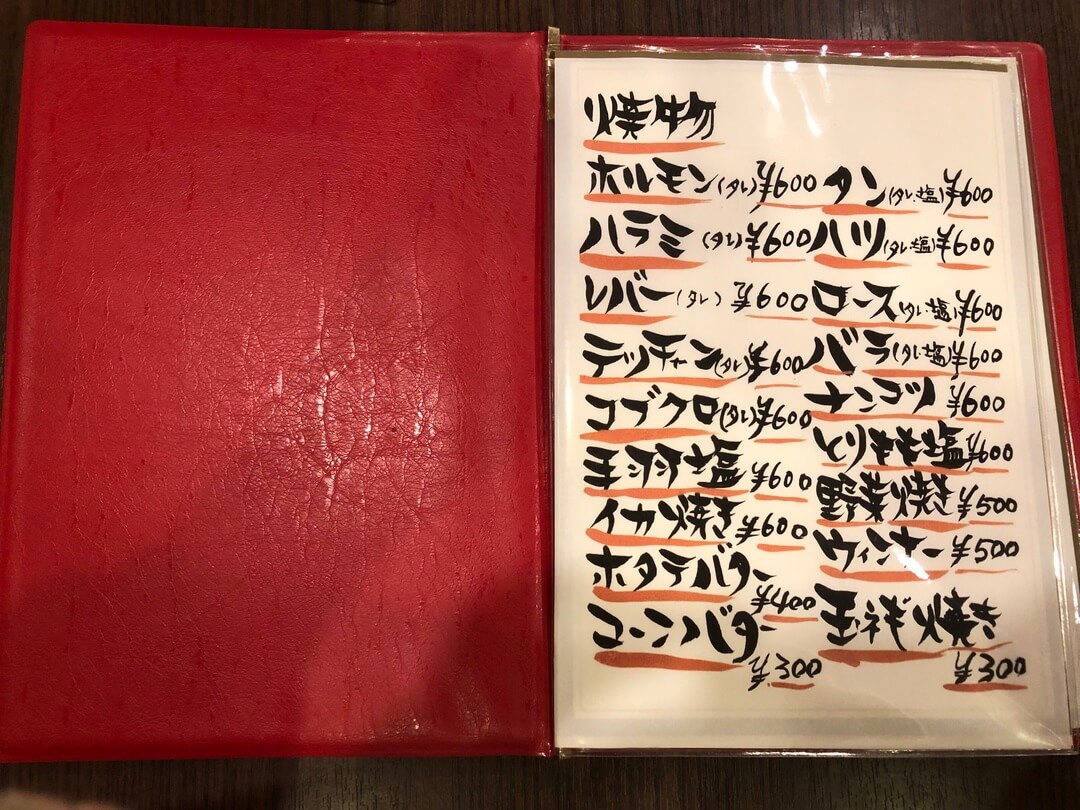 焼物
ホルモン(タレ)¥600 タン(タレ・塩)¥600
ハラミ(タレ)¥600 ハツ(タレ・塩)¥600
レバー(タレ)¥600 ロース(タレ・塩)¥600
テッチャン(タレ)¥600 バラ(タレ・塩)¥600
コブクロ(タレ)¥600 ナンコツ ¥600
手羽塩 ¥600 とりもも塩¥600
イカ焼き ¥600 野菜焼き ¥500
ホタテバター ¥400 ウィンナー ¥500
コーンバター ¥300 玉ネギ焼き ¥300